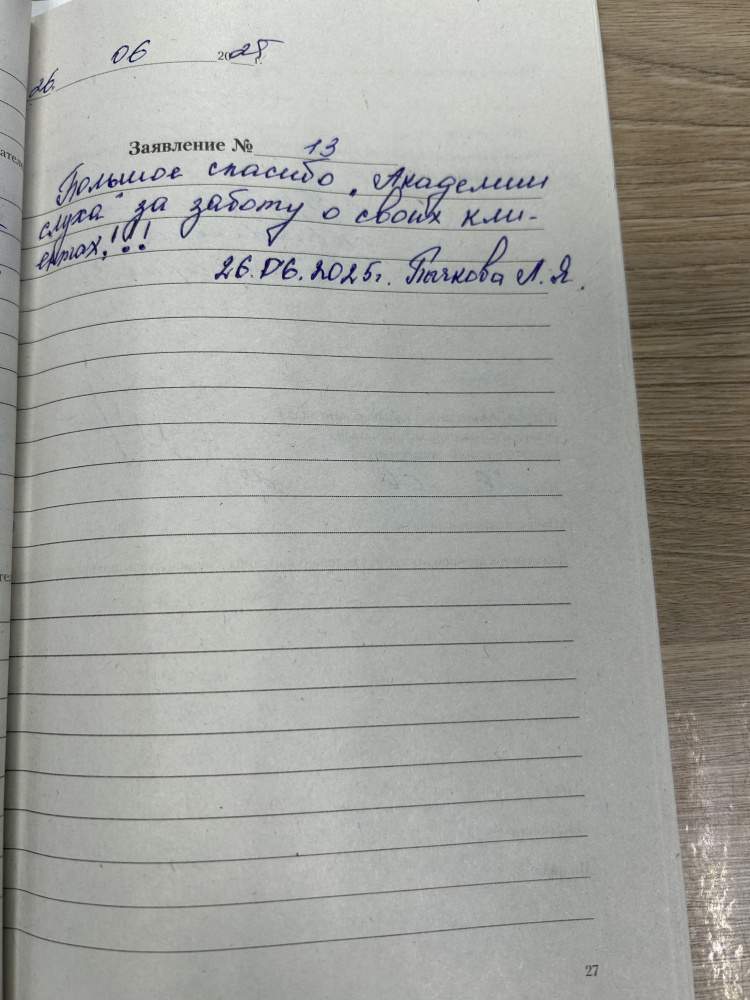 26. 06 2025 г.
Заявление № 13
Большое спасибо „Академии
слуха" за заботу о своих кли-
ентах!!!
26.06.2025г. Пычкова Л.Я.
27